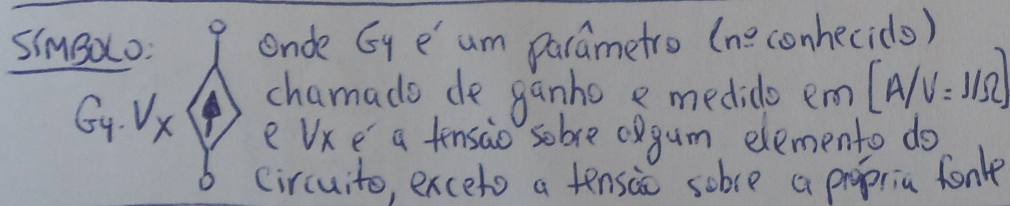 SÍMBOLO: onde G4 é um parâmetro (nº conhecido)
chamado de ganho e medido em [A/V = 1/Ω]
G4.Vx e Vx é a tensão sobre algum elemento do
circuito, exceto a tensão sobre a própria fonte